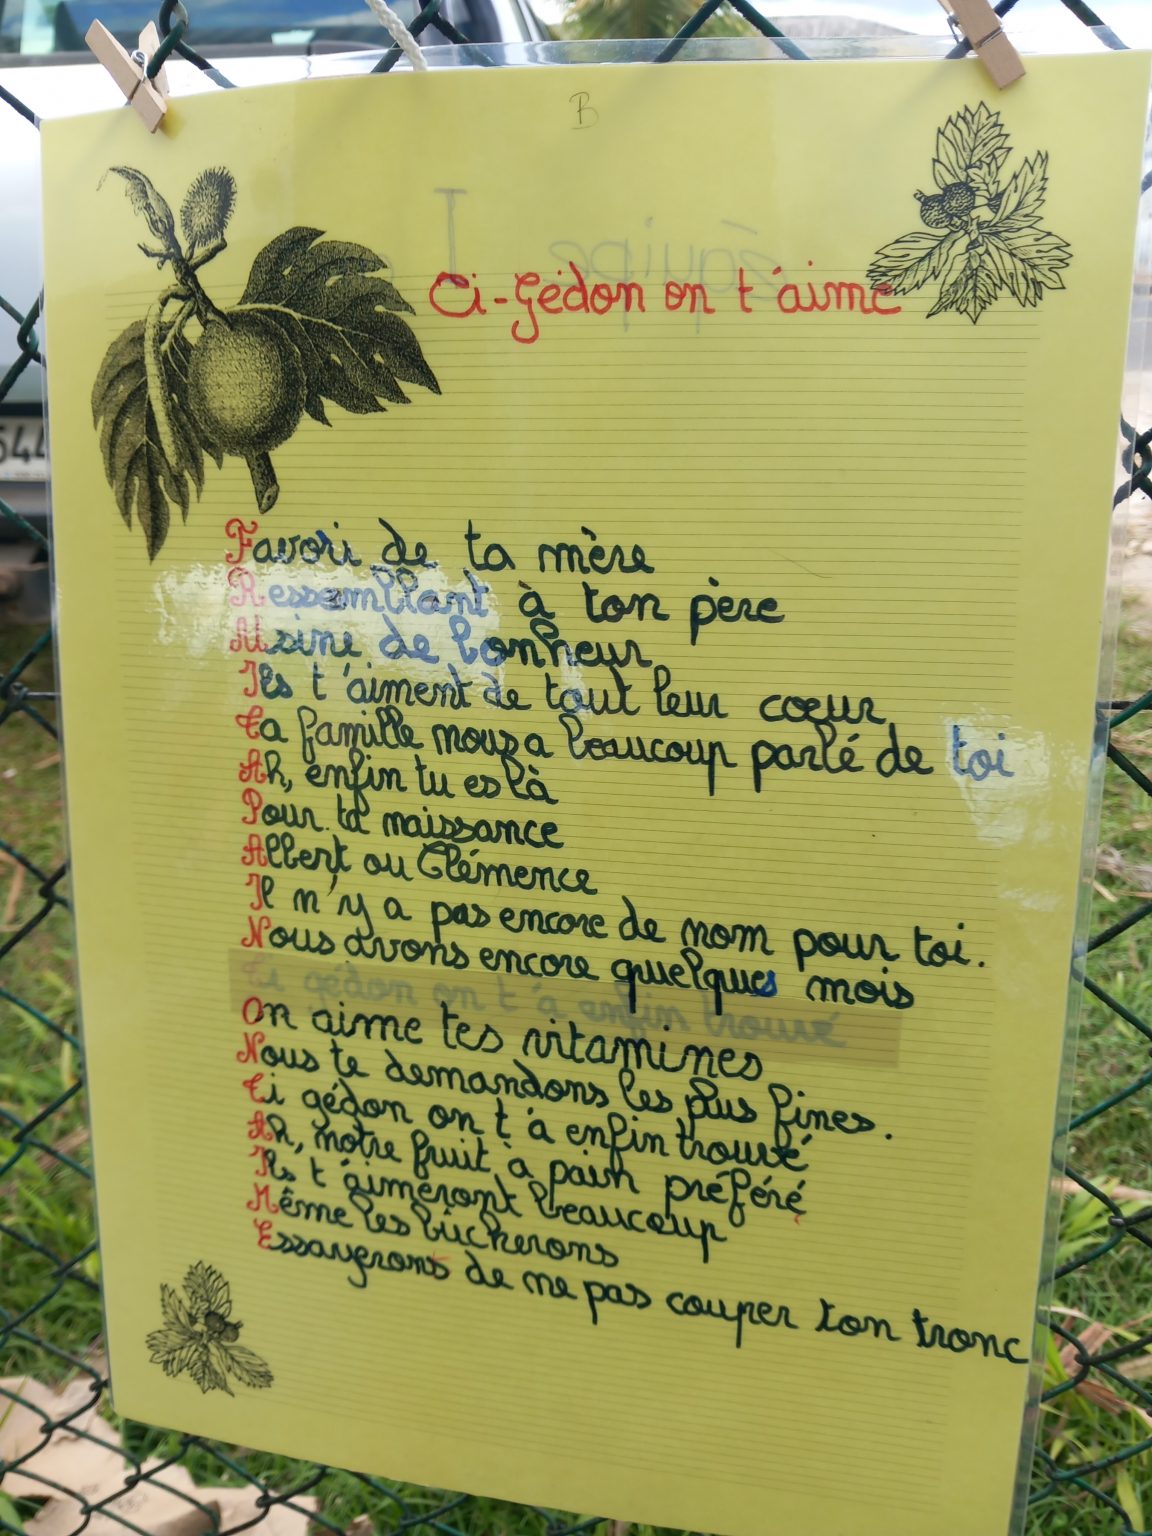 B
équipe I
Ti-Gédon on t'aime
Favori de ta mère
Ressemblant à ton père
Usine de bonheur
Ils t'aiment de tout leur coeur
Ta famille nous a beaucoup parlé de toi
Ah, enfin tu es là
Pour ta naissance
Albert ou Clémence
Il n'y a pas encore de nom pour toi.
Nous avons encore quelques mois
Ti gédon on t'a enfin trouvé
On aime tes vitamines
Nous te demandons les plus fines.
Ti gédon on t'a enfin trouvé
Ah, notre fruit à pain préféré
Ils t'aimeront beaucoup
Même les bûcherons
Essayerons de ne pas couper ton tronc